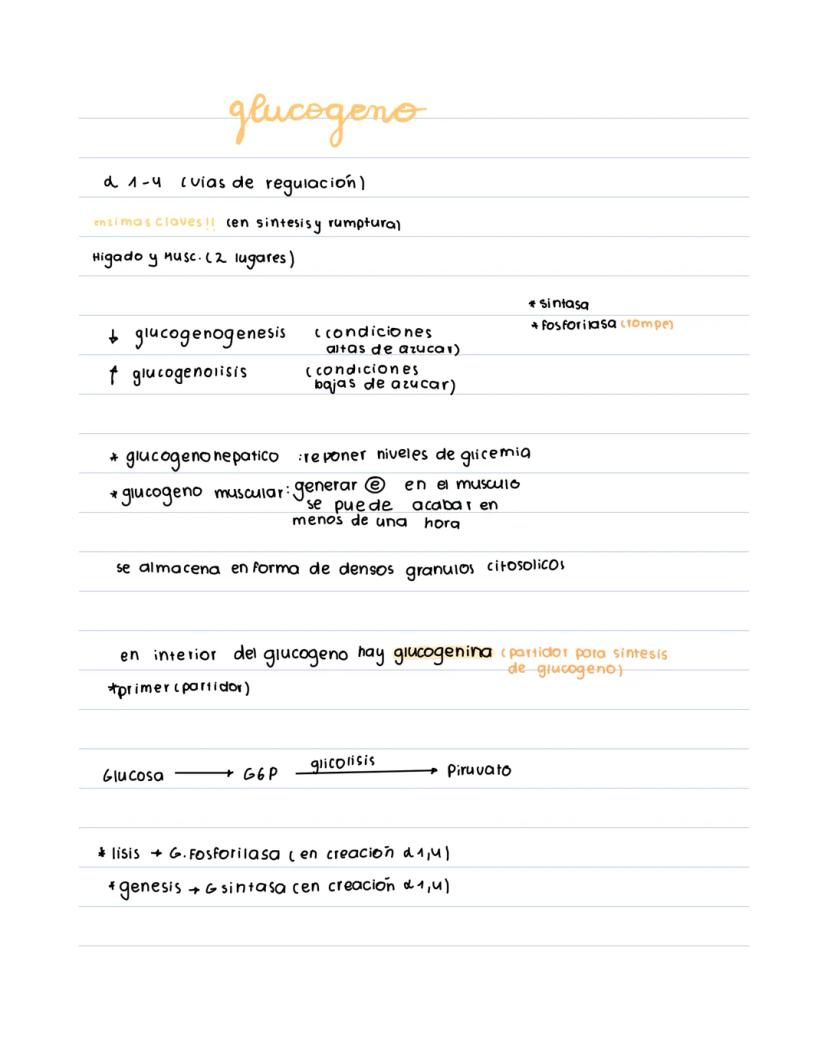 glucogeno
α 1-4 (vias de regulación)
enzimas claves!! (en sintesis y rumptura)
Higado y Musc. (2 lugares)
* sintasa
* fosforilasa (rompe)
↓ glucogenogenesis (condiciones
altas de azucar)
↑ glucogenolisis (condiciones
bajas de azucar)
* glucogeno hepatico : reponer niveles de glicemia
* glucogeno muscular: generar ⓔ en el musculo
se puede acabar en
menos de una hora
se almacena en forma de densos granulos citosolicos
en interior del glucogeno hay glucogenina (partidor para sintesis
de glucogeno)
*primer (partidor)
Glucosa → G6P glicolisis → Piruvato
* lisis → G. Fosforilasa (en creación α 1,4)
* genesis → G sintasa (en creación α 1,4)